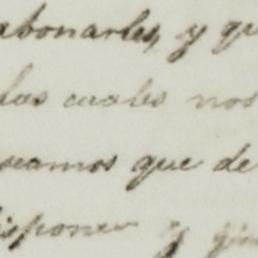 abonarles, y qu
las cuales nos
seamos que de
isponer y